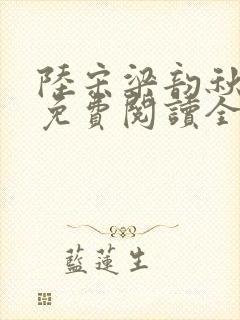 陸宗梁韵秋
免費閱讀全
藍蓮生